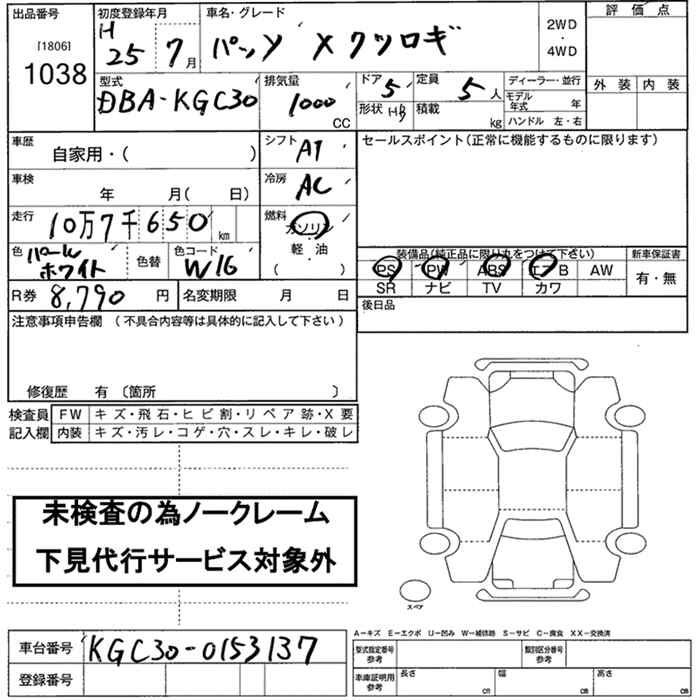 出品番号
[1806]
1038
初度登録年月
H
25 7月
車名・グレード
パッソ X クツロギ
2WD
・
4WD
評 価 点
外 装 内 装
型式
DBA-KGC30
排気量
1000
CC
ドア 5
形状 HB
定員 5 人
積載 kg
ディーラー・並行
モデル年式 年
ハンドル 左・右
車歴
自家用・( )
シフト AT
セールスポイント(正常に機能するものに限ります)
車検
年 月( 日)
冷房 AC
走行
10万7千650 km
燃料
ガソリン
軽・油
( )
色 パールホワイト
色替
色コード
W16
装備品(純正品に限り丸をつけて下さい)
PS PW ABS エアB AW
SR ナビ TV カワ
新車保証書
有・無
R券 8,790 円
名変期限 月 日
後日品
注意事項申告欄 (不具合内容等は具体的に記入して下さい)
修復歴 有 〔箇所 〕
検査員 FW キズ・飛石・ヒビ割・リペア跡・X要
記入欄 内装 キズ・汚レ・コゲ・穴・スレ・キレ・破レ
未検査の為ノークレーム
下見代行サービス対象外
スペア
車台番号 KGC30-0153137
登録番号
A－キズ E－エクボ U－凹み W－補修跡 S－サビ C－腐食 XX－交換済
型式指定番号
参考
類別区分番号
参考
車庫証明用
参考
長さ cm
幅 cm
高さ cm